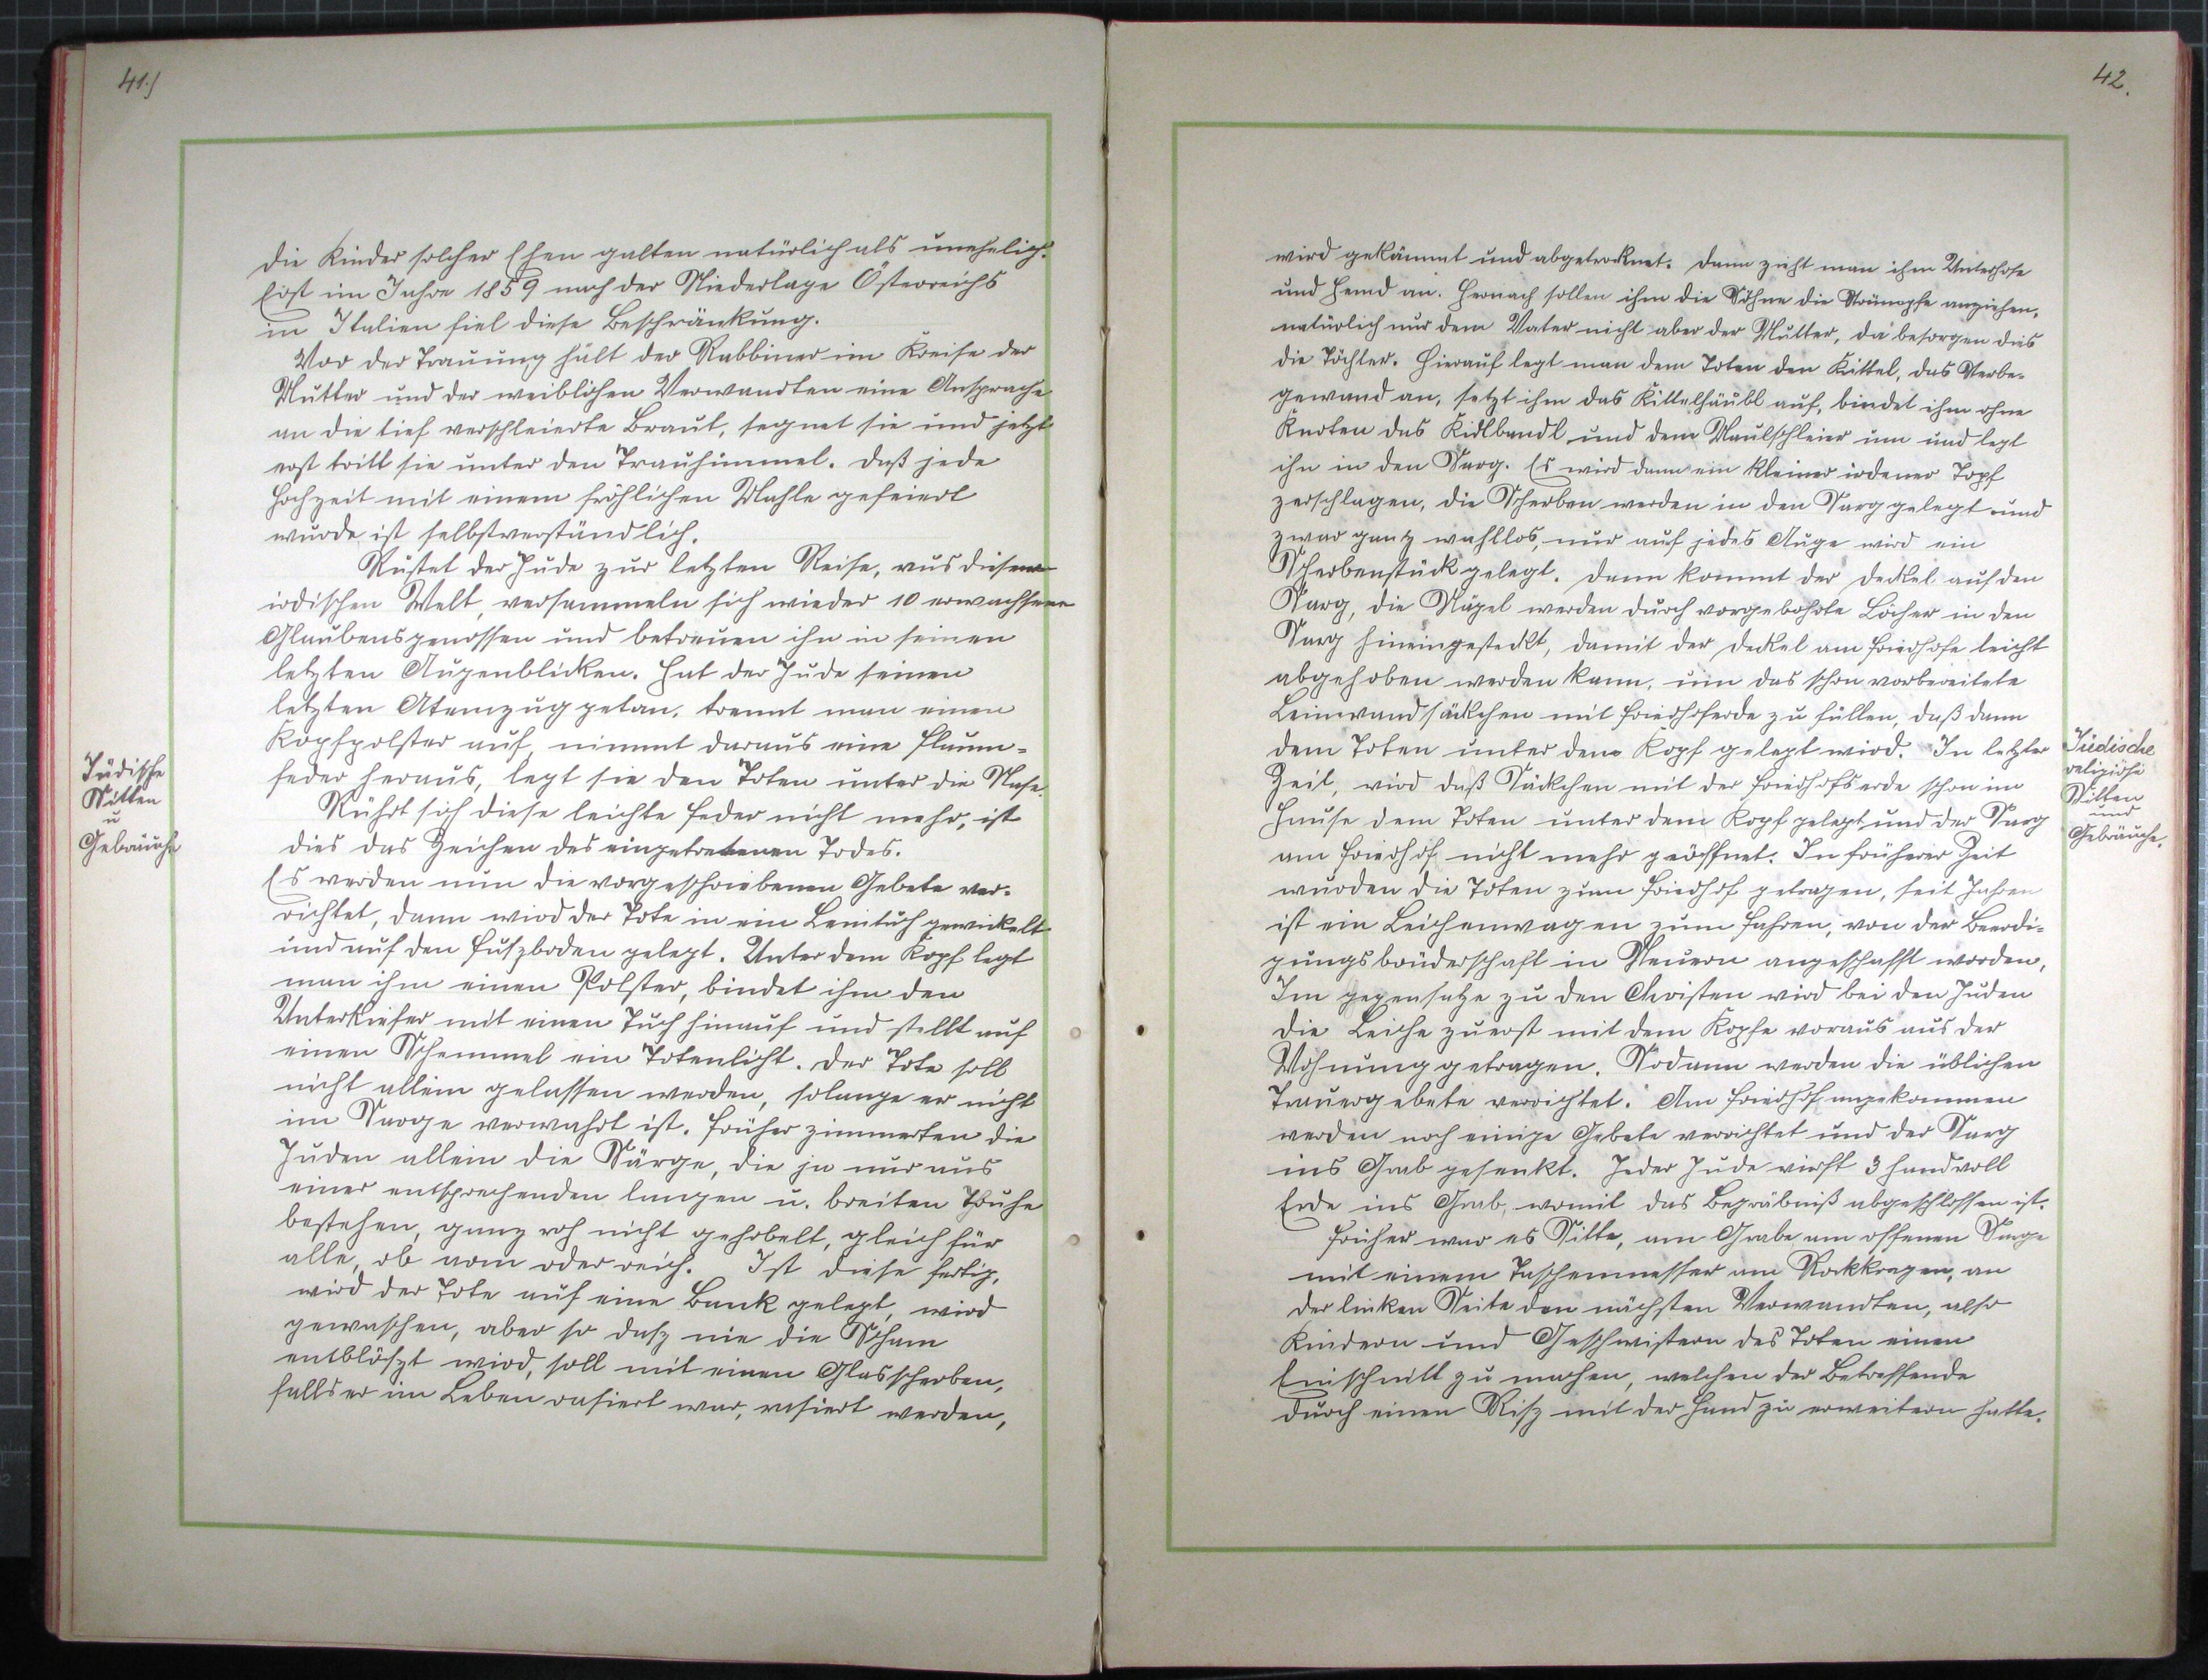 41.)
die Kinder solcher Ehen galten natürlich als unehelich.
Erst im Jahre 1859 nach der Niederlage Österreichs
in Italien fiel diese Beschränkung.
Vor der Trauung hält der Rabbiner im Kreise der
Mutter und der weiblichen Verwandten eine Ansprache
an die tief verschleierte Braut, segnet sie und jetzt
erst tritt sie unter den Trauhimmel. Daß jede
Hochzeit mit einem fröhlichen Mahle gefeiert
wurde ist selbstverständlich.
Rüstet der Jude zur letzten Reise, aus dieser
irdischen Welt, versammeln sich wieder 10 erwachsene
Glaubensgenossen und betreuen ihn in seinen
letzten Augenblicken. Hat der Jude seinen
letzten Atemzug getan, trennt man einen
Kopfpolster auf, nimmt daraus eine Flaum-
feder heraus, legt sie den Toten unter die Nase.
Rührt sich diese leichte Feder nicht mehr, ist
dies das Zeichen des eingetretenen Todes.
Es werden nun die vorgeschriebenen Gebete ver-
richtet, dann wird der Tote in ein Leintuch gewickelt
und auf den Fuszboden gelegt. Unter dem Kopf legt
man ihm einen Polster, bindet ihm den
Unterkiefer mit einen Tuch hinauf und stellt auf
einen Schemmel ein Totenlicht. Der Tote soll
nicht allein gelassen werden, solange er nicht
im Sarge verwahrt ist. Früher zimmerten die
Juden allein die Särge, die ja nur aus
einer entsprechenden langen u. breiten Truhe
bestehen, ganz roh nicht gehobelt, gleich für
alle, ob arm oder reich. Ist diese fertig,
wird der Tote auf eine Bank gelegt, wird
gewaschen, aber so dasz nie die Scham
entblöszt wird, soll mit einen Glasscherben,
falls er im Leben rasiert war, rasiert werden,
Jüdische
Sitten
u
Gebräuche
42.
wird gekämmt und abgetrocknet. Dann zieht man ihm Unterhose
und Hemd an. Hernach sollen ihm die Söhne die Strümpfe anziehen,
natürlich nur dem Vater nicht aber der Mutter, da besorgen dies
die Töchter. Hierauf legt man dem Toten den Kittel, das Sterbe-
gewand an, setzt ihm das Kittelhäubl auf, bindet ihm ohne
Knoten das Kidlbandl und dem Maulschleier um und legt
ihn in den Sarg. Es wird dann ein kleiner irdener Topf
zerschlagen, die Scherben werden in den Sarg gelegt und
zwar gantz wahllos, nur auf jedes Auge wird ein
Scherbenstück gelegt. Dann kommt der Deckel auf den
Sarg, die Nägel werden durch vorgebohrte Löcher in den
Sarg hineingesteckt, damit der Deckel am Friedhofe leicht
abgehoben werden kann, um das schon vorbereitete
Leinwandsäckchen mit Friedhoferde zu füllen, daß dann
dem Toten unter dem Kopf gelegt wird. In letzter
Zeit, wird daß Säckchen mit der Friedhofserde schon im
Hause dem Toten unter dem Kopf gelegt und der Sarg
am Friedhof nicht mehr geöffnet. In früherer Zeit
wurden die Toten zum Friedhof getragen, seit Jahren
ist ein Leichenwagen zum fahren, von der Beerdi-
gungsbrüderschaft in Neuern angeschafft worden,
Im gegensatze zu den Christen wird bei den Juden
die Leiche zuerst mit dem Kopfe voraus aus der
Wohnung getragen. Sodann werden die üblichen
Trauergebete verrichtet. Am Friedhof angekommen
werden noch einige Gebete verrichtet und der Sarg
ins Grab gesenkt. Jeder Jude wirft 3 handvoll
Erde ins Grab, womit das Begräbniß abgeschlossen ist.
Früher war es Sitte, am Grabe am offenen Sarge
mit einem Taschenmesser am Rockkragen, an
der linken Seite den nächsten Verwandten, also
Kindern und Geschwistern des Toten einen
Einschnitt zu machen, welchen der Betreffende
durch einen Risz mit der Hand zu erweitern hatte.
Jüdische
religiöse
Sitten
und
Gebräuche.